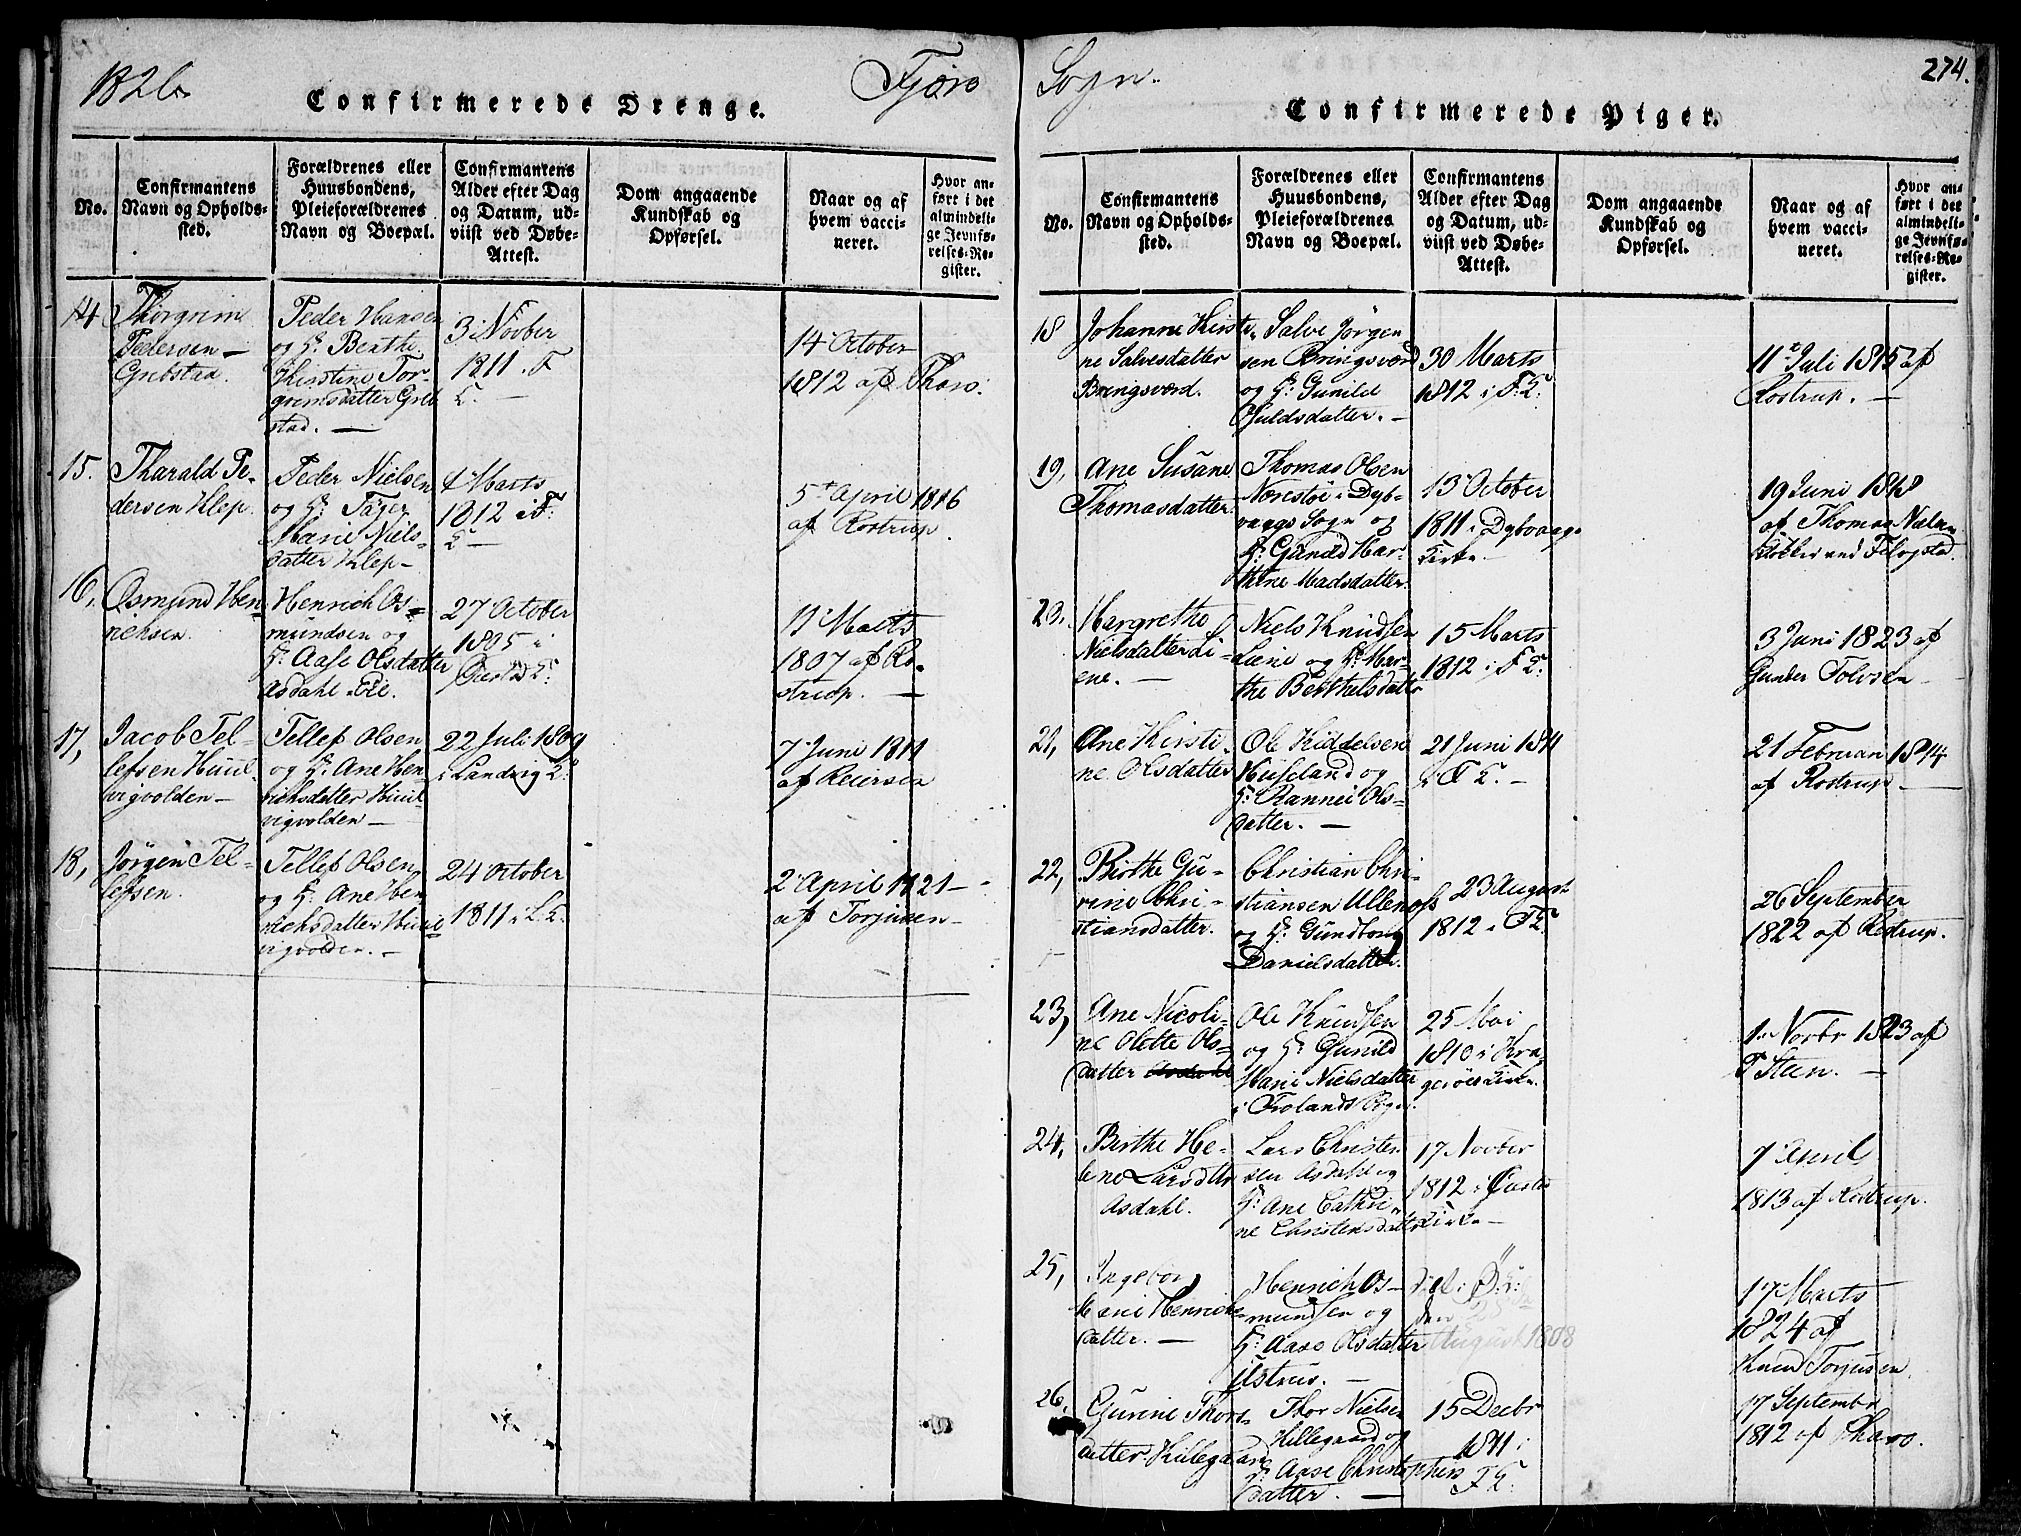 1826.
Fjære
Confirmerede Drenge.
No.
Confirmantens
Navn og Opholds-
sted.
Forældrenes eller
Huusbondens,
Pleieforældrenes
Navn og Boepæl.
Confirmantens
Alder efter Dag
og Datum, ud-
viist ved Døbe-
Attest.
Dom angaaende
Kundskab og
Opførsel.
Naar og af
hvem vacci-
neret.
Hvor an-
ført i det
almindeli-
ge Jevnfø-
relses-Re-
gister.
14
Thorgrim
Pedersen
Grebstad.
Peder Hansen
og H: Berthe
Kirstine Tor-
grimsdatter Greb
stad. —
3 Novber
1811 i F
K. —
14 October
1812 af Tharo:
15.
Tharald Pe-
dersen Klep.
Peder Nielsen
og H: Täger
Marie Niels-
datter Klep —
4 Marts
1812 i F:
K —
5t April 1816
af Rostrup.
16,
Osmund Hen-
richsen.
Henrich Os-
mundsen og
H: Aase Olsdatter
Asdahl Eie.
27 October
1805 i
Øiestad K:
11 Marts
1807 af Ro-
strup. —
17,
Jacob Tel-
lefsen Huul-
vigvolden —
Tellef Olsen
og H: Ane Hen
richsdatter Huul
vigvolden —
22 Juli 1809
i Landvig K:
7 Juni 1811
af Reiersen
18,
Jørgen Tel-
lefsen.
Tellef Olsen
og H: Ane Hen
richsdatter Huul
vigvolden. —
24 October
1811 i L: K:
2 April 1821 —
af Torjusen —
Sogn.
274.
Confirmerede Piger.
No.
Confirmantens
Navn og Opholds-
sted.
Forældrenes eller
Huusbondens,
Pleieforældrenes
Navn og Boepæl.
Confirmantens
Alder efter Dag
og Datum, ud-
viist ved Døbe-
Attest.
Dom angaaende
Kundskab og
Opførsel.
Naar og af
hvem vacci-
neret.
Hvor an-
ført i det
almindeli-
ge Jevnfø-
relses-Re-
gister.
18
Johanne Kirsti-
ne Salvesdatter
Bringsværd.
Salve Jörgen
sen Bringsværd
og H: Gunild
Ouldsdatter. —
30 Marts
1812 i F: K:
11t Juli 1815 af
Rostrup. —
19,
Ane Susane
Thomasdatter
Thomas Olsen
Narestöe i Dyb-
vaags Sogn og
H: Gunild Mar-
thine Madsdatter.
13 October
1811 i Dybvaags
Kirke —
19 Juni 1818
af Thomas Nielsen
Klokker ved
20.
Margrethe
Nielsdatter Li-
ene. —
Niels Knudsen
Liene og H: Mar-
the Berthelsdatter
15 Marts
1812 i F K:
3 Juni 1823 af
Gunder Tolvsen —
21,
Ane Kirsti-
ne Olsdatter
Ole Kiddelsen
Huseland og
H: Rannei Ols-
datter. —
21 Juni 1811
i F K. —
21 Februar 1814
af Rostrup. —
22,
Birthe Gu-
rine Chri-
stiansdatter.
Christian Chri-
stiansen Ullenæs
og H: Gundborg
Danielsdatter.
23 August
1812 i F K:
26 September
1822 af Rostrup.
23,
Ane Nicoli-
ne Olette Ols-
datter
Ole Knudsen
og H: Gunild
Marie Nielsdatter
i Frolands Sogn.
25 Mai
1810 i Kra-
geröes Kirke.
1 Novbr 1823 af
P Steen. —
24,
Birthe He-
lene Larsdtr
Asdahl.
Lars Christen
sen Asdahl og
H: Ane Cathri-
ne Christensdatter
17 Novber
1812 i Øiestad
Kirke —
7 April
1813 af Rostrup.
25,
Ingeborg
Marie Henrichs-
datter. —
Henrich Os-
mundsen og
H: Aase Olsdatter
—
i Ø: K:
den
August 1808
17 Marts
1824 af
Knud Torjusen.
26,
Gurine Thors-
datter Hillegaard
Thor Nielsen
Hillegaard og
H: Aase Christophers
datter. —
15 Decbr
1811 i
F K:
17 Septembr
1812 af Tharo.